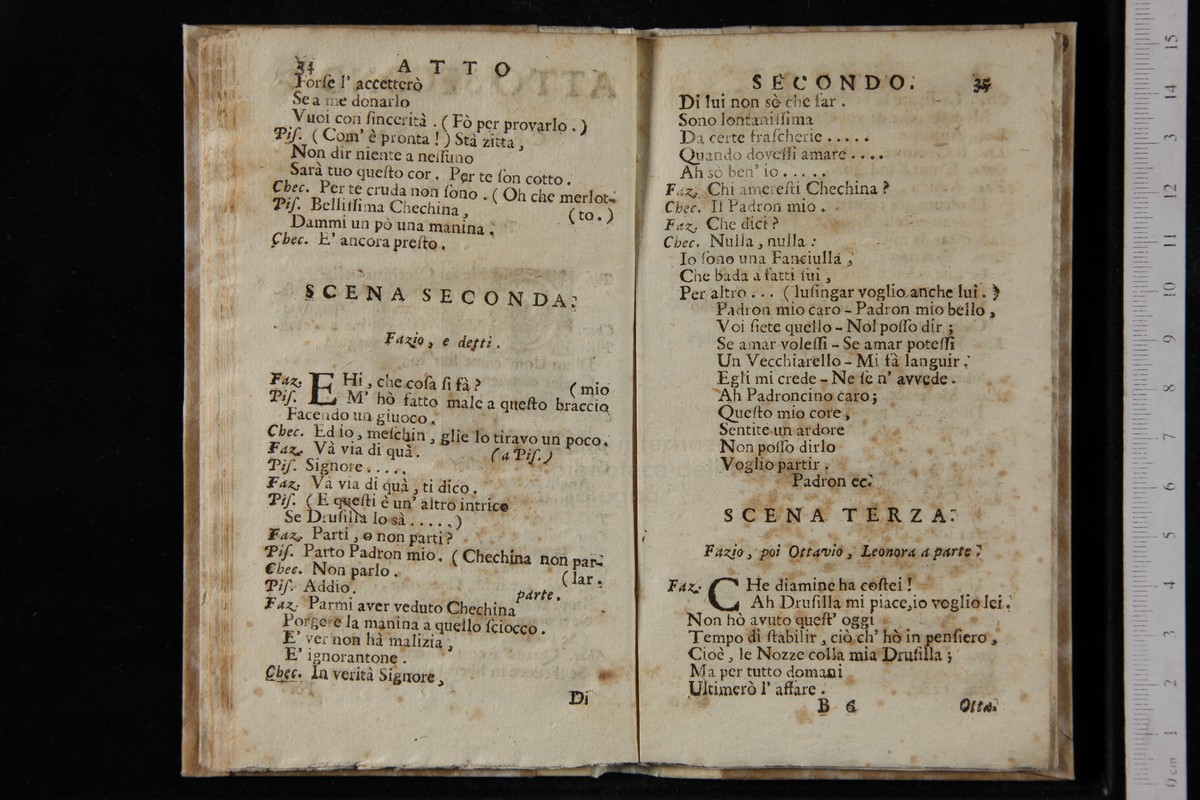 34 ATTO
Forſe l' accetterò
Se a me donarlo
Vuoi con ſincerità . ( Fò per provarlo . )
Piſ. ( Com' è pronta ! ) Stà zitta ,
Non dir niente a neſſuno
Sarà tuo queſto cor . Per te ſon cotto .
Chec. Per te cruda non ſono . ( Oh che merlot-
Piſ. Belliſſima Chechina , ( to . )
Dammi un pò una manina .
Chec. E' ancora preſto .
SCENA SECONDA.
Fazio , e detti .
Faz. EHi , che coſa ſi fà ? ( mio
Piſ. M' hò fatto male a queſto braccio
Facendo un giuoco .
Chec. Ed io , meſchin , glie lo tiravo un poco .
Faz. Và via di quà . ( a Piſ. )
Piſ. Signore . . . . .
Faz. Và via di quà , ti dico .
Piſ. ( E queſti è un' altro intrico
Se Druſilla lo sà . . . . . )
Faz. Parti , o non parti ?
Piſ. Parto Padron mio . ( Chechina non par-
Chec. Non parlo . ( lar .
Piſ. Addio . parte .
Faz. Parmi aver veduto Chechina
Porgere la manina a quello ſciocco .
E' ver non hà malizia ,
E' ignorantone .
Chec. In verità Signore ,
Di
SECONDO. 35
Di lui non sò che far .
Sono lontaniſſima
Da certe fraſcherie . . . . .
Quando doveſſi amare . . . .
Ah sò ben' io . . . . .
Faz. Chi amereſti Chechina ?
Chec. Il Padron mio .
Faz. Che dici ?
Chec. Nulla , nulla :
Io ſono una Fanciulla ,
Che bada a fatti ſui ,
Per altro . . . ( luſingar voglio anche lui . )
Padron mio caro - Padron mio bello ,
Voi ſiete quello - Nol poſſo dir ;
Se amar voleſſi - Se amar poteſſi
Un Vecchiarello - Mi fà languir .
Egli mi crede - Ne ſe n' avvede .
Ah Padroncino caro ;
Queſto mio core ,
Sentite un ardore
Non poſſo dirlo
Voglio partir .
Padron ec.
SCENA TERZA.
Fazio , poi Ottavio , Leonora a parte .
Faz. CHe diamine ha coſtei !
Ah Druſilla mi piace,io voglio lei .
Non hò avuto queſt' oggi
Tempo di ſtabilir , ciò ch' hò in penſiero ,
Cioè , le Nozze colla mia Druſilla ;
Ma per tutto domani
Ultimerò l' affare .
B 6 Otta.
0 cm 1 2 3 4 5 6 7 8 9 10 11 12 13 14 15